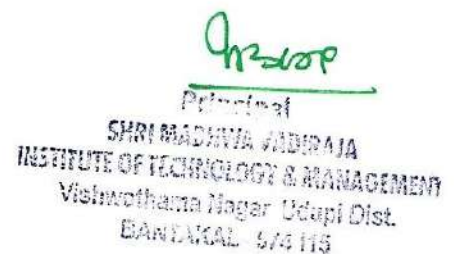 Principal
SHRI MADHWA VADIRAJA
INSTITUTE OF TECHNOLOGY & MANAGEMENT
Vishwothama Nagar Udupi Dist.
BANTAKAL 574 115